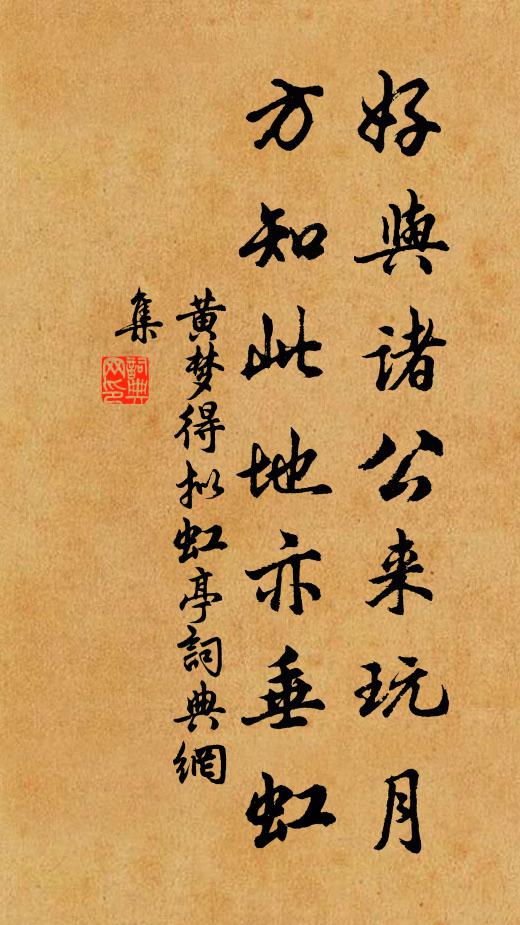 好與诸公来玩月
方知此地亦垂虹
黄梦得拟虹亭詞典網
集
詞典网印